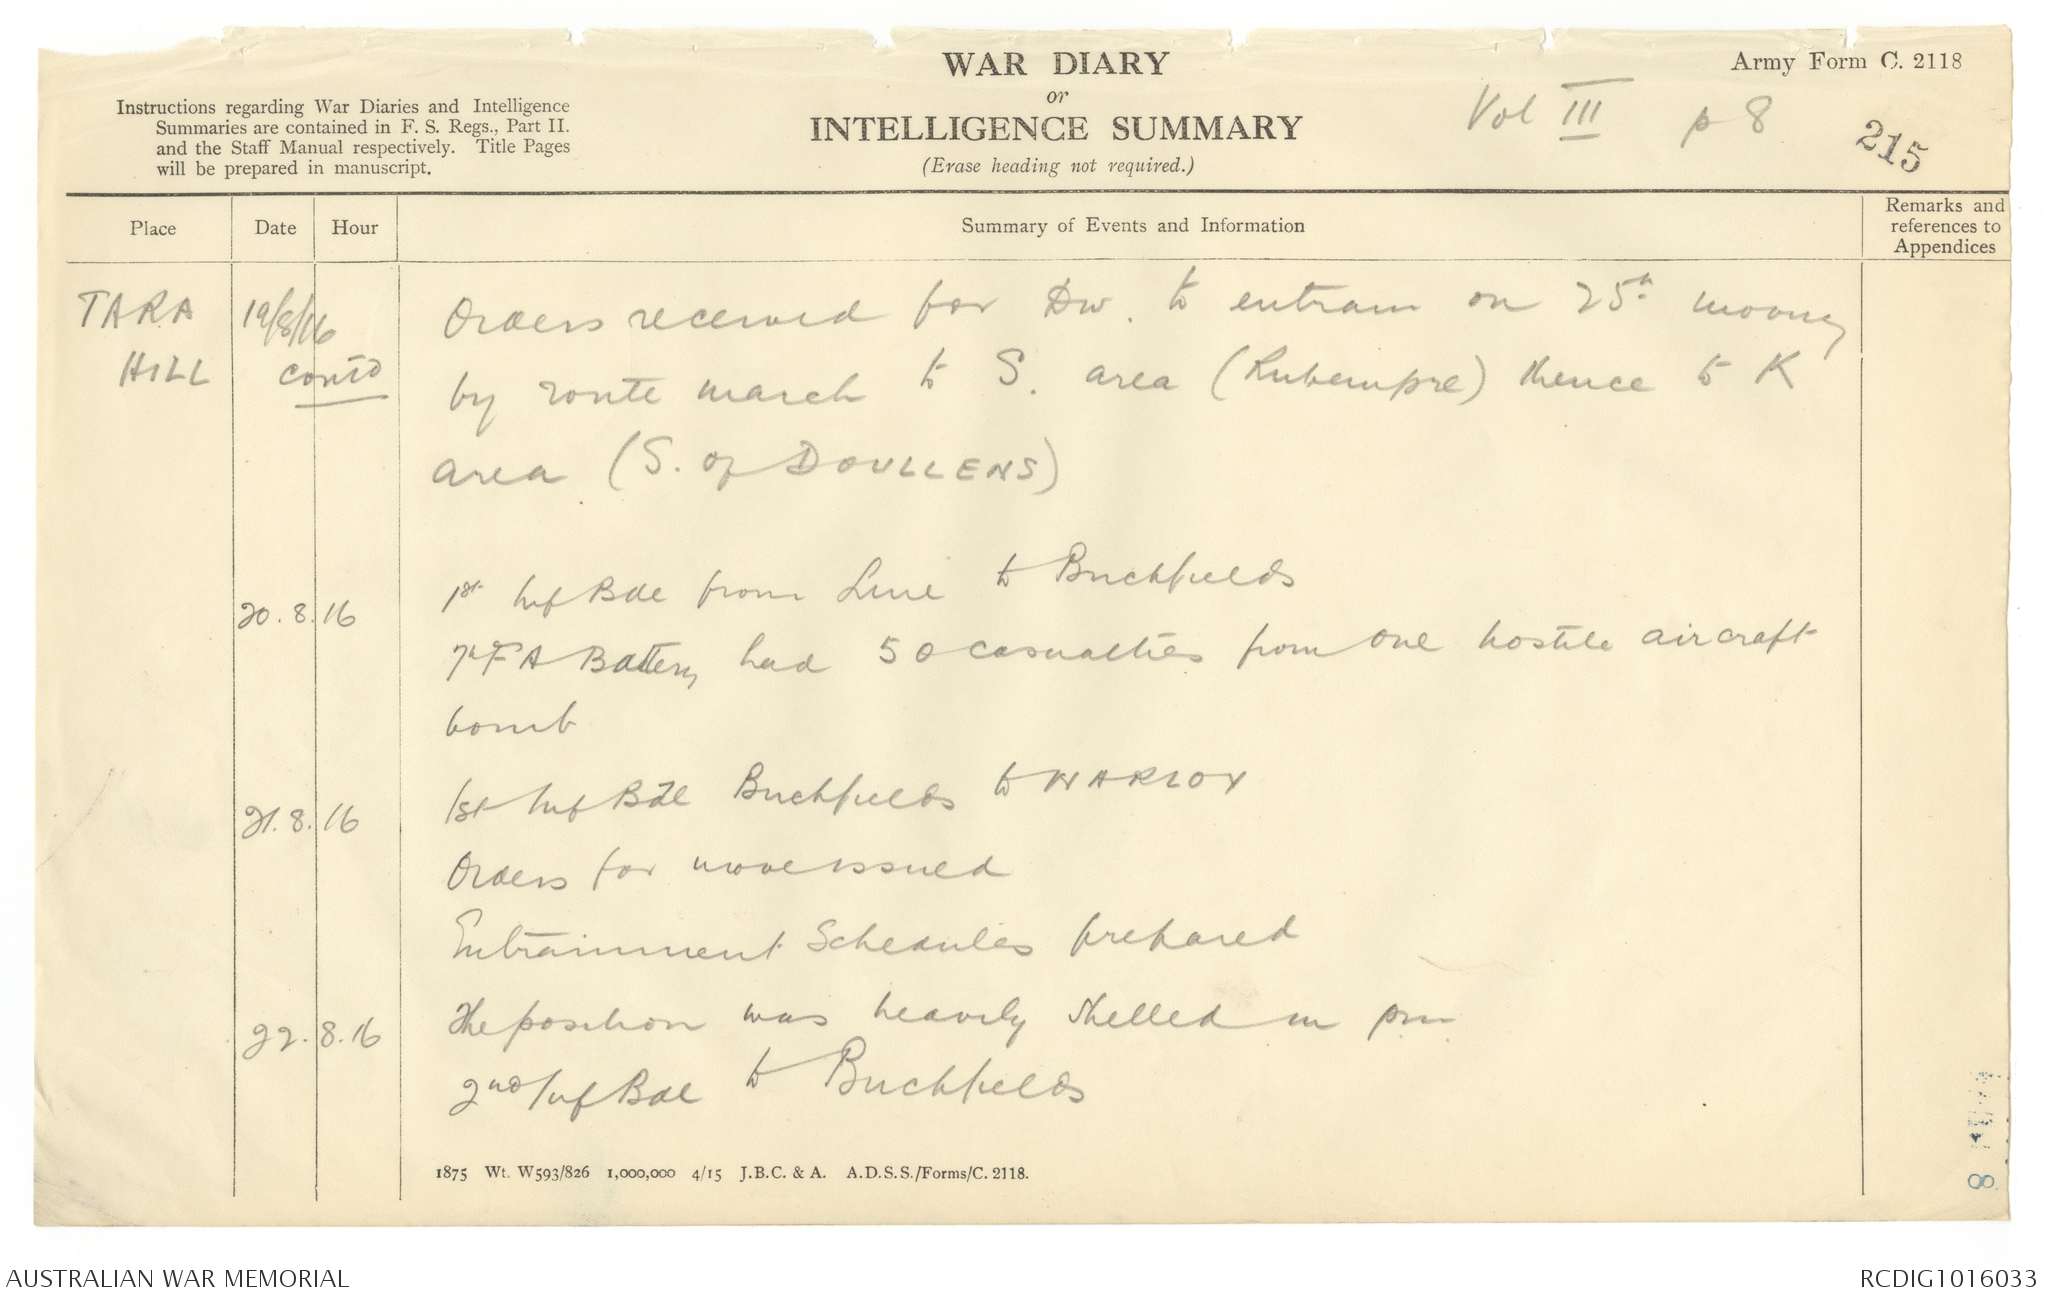 WAR DIARY
or
INTELLIGENCE SUMMARY
(Erase heading not required.)
Army Form C. 2118
Vol III p 8
215
Instructions regarding War Diaries and Intelligence
Summaries are contained in F. S. Regs., Part II.
and the Staff Manual respectively. Title Pages
will be prepared in manuscript.
Place
Date
Hour
Summary of Events and Information
Remarks and
references to
Appendices
TARA
HILL
19/8/16
contd
Orders received for Div. to entrain on 25th moving
by route march to S. area (Rubempre) thence to K
area (S. of DOULLENS)
20.8.16
1st Inf Bde from Line to Brickfields
7th F A Battery had 50 casualties from one hostile aircraft
bomb
21.8.16
1st Inf Bde Brickfields to WARLOY
Orders for move issued
Entrainment Schedules prepared
22.8.16
The position was heavily shelled in pm
2nd Inf Bde to Brickfields
1875 Wt. W593/826 1,000,000 4/15 J.B.C. & A. A.D.S.S./Forms/C. 2118.
8
AUSTRALIAN WAR MEMORIAL
RCDIG1016033